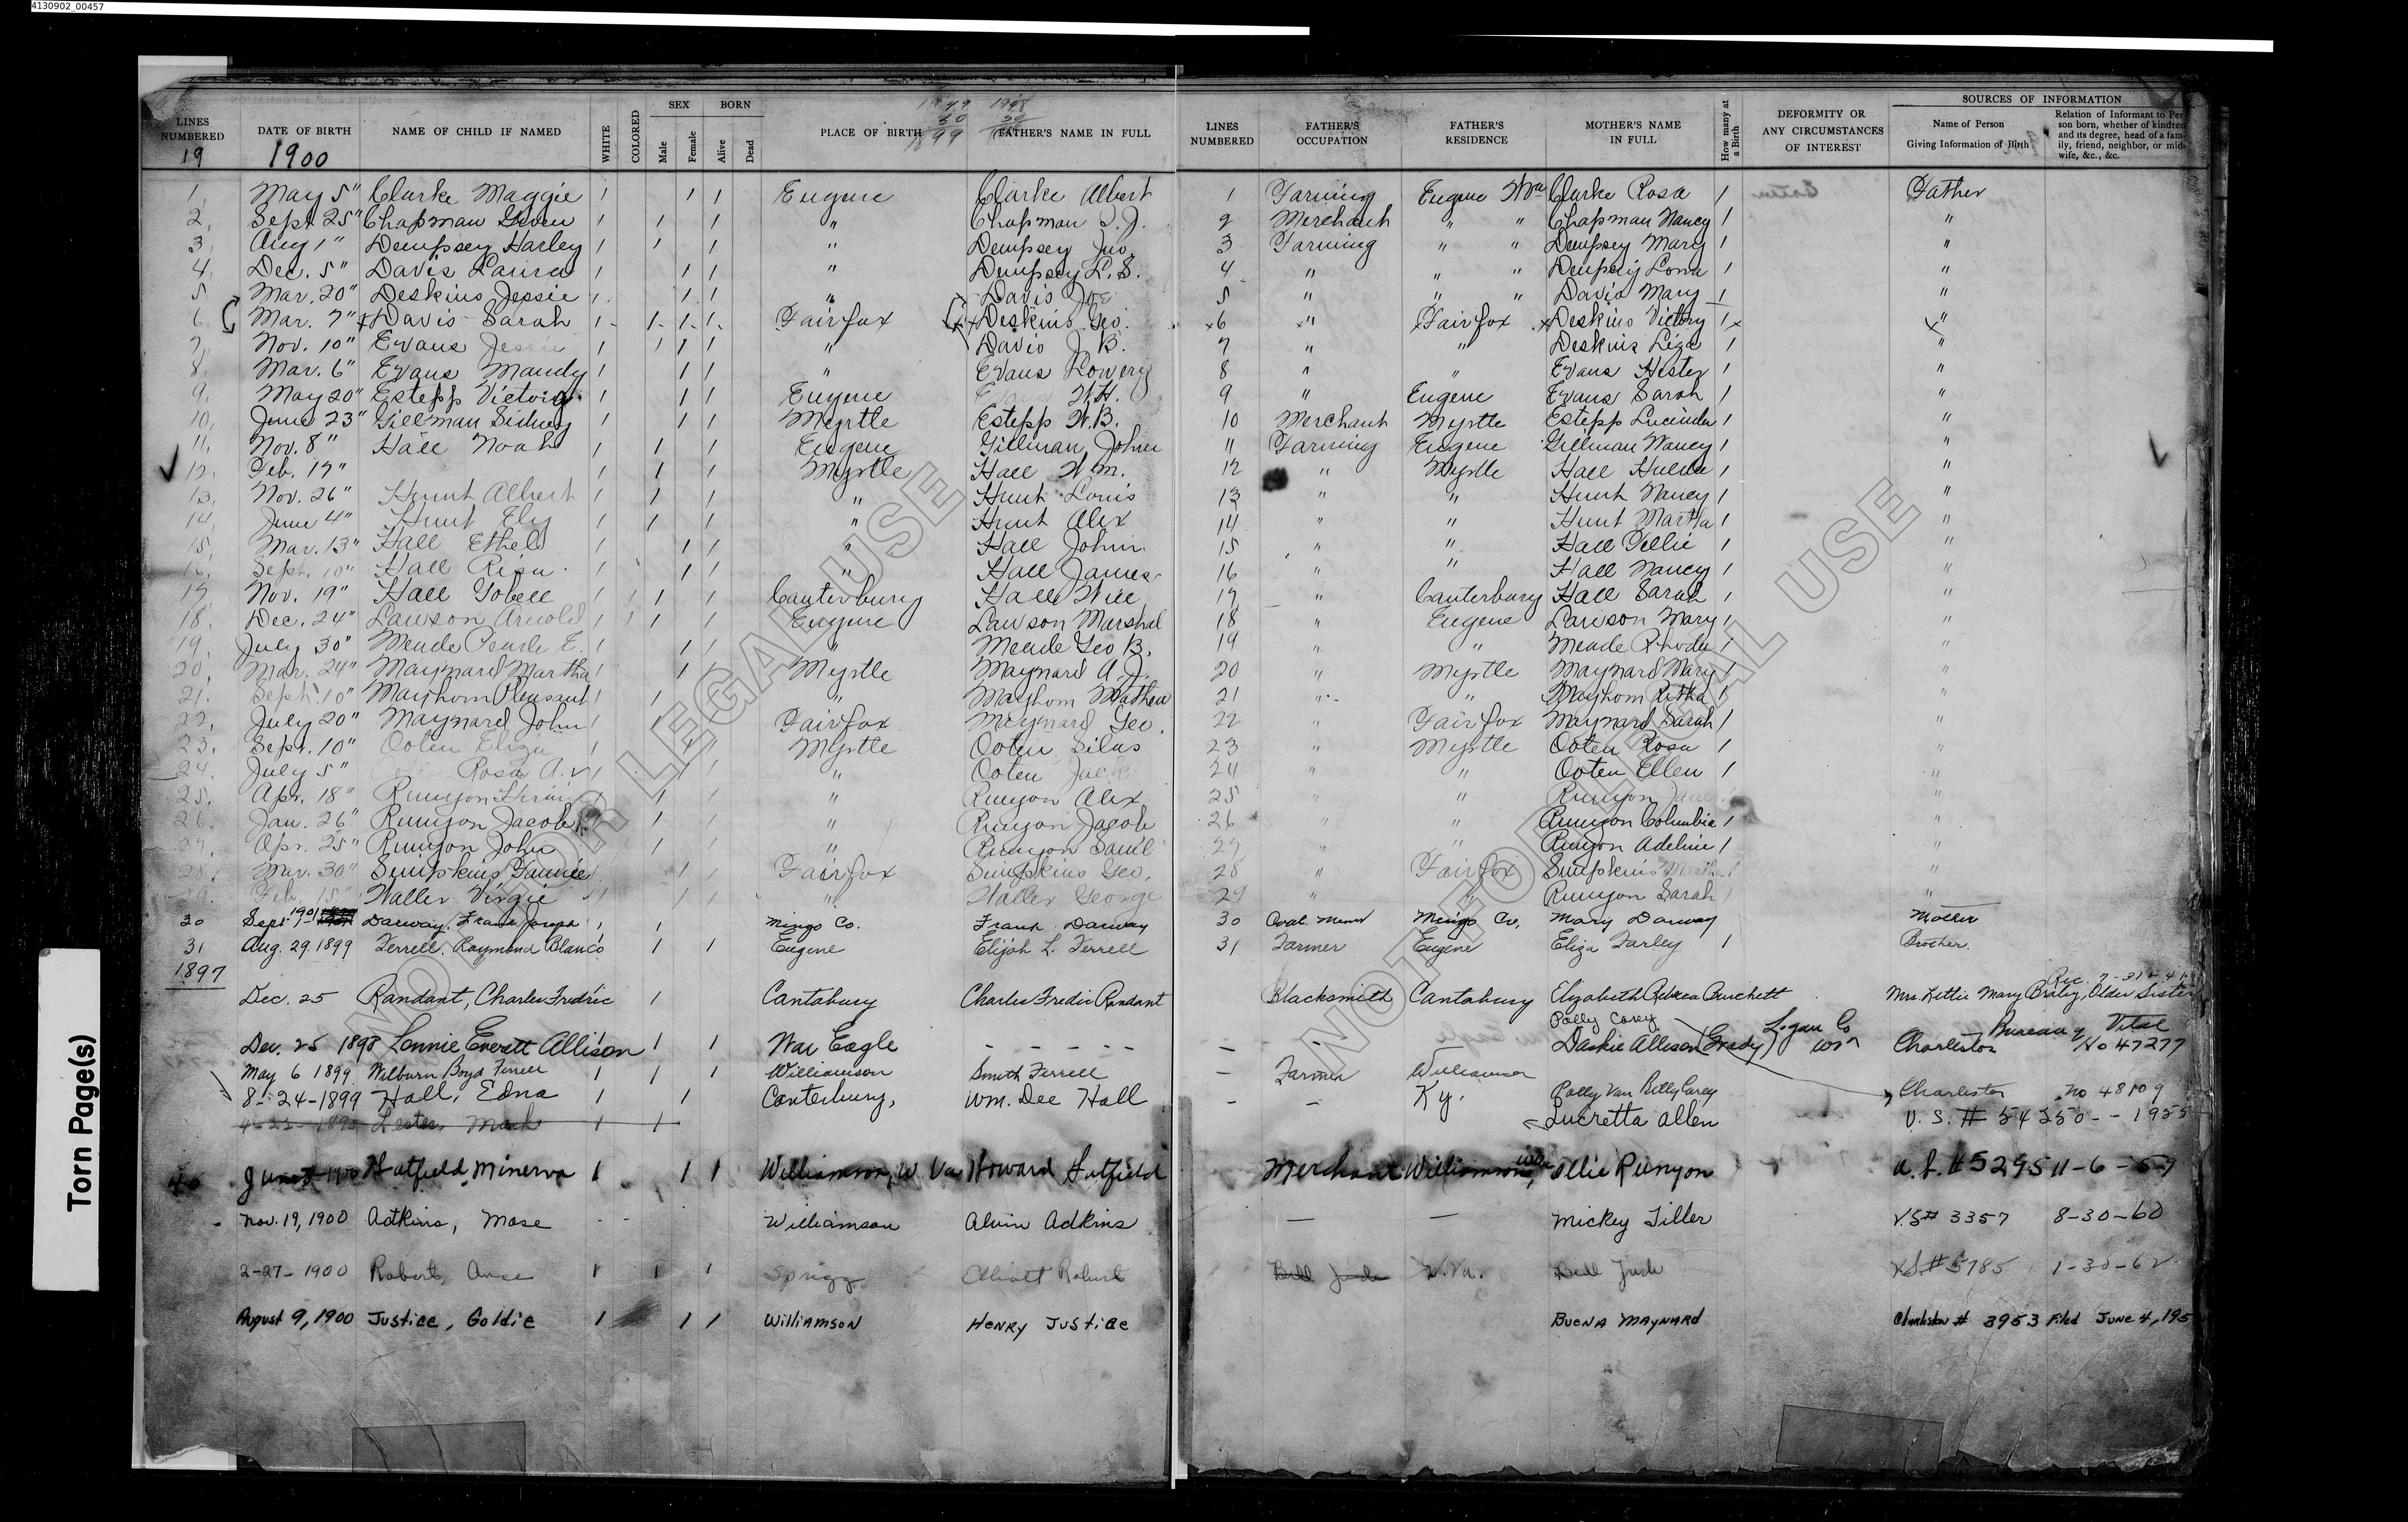 4130902_00457
1949 1948
LINES NUMBERED DATE OF BIRTH NAME OF CHILD IF NAMED WHITE COLORED SEX Male Female BORN Alive Dead PLACE OF BIRTH FATHER'S NAME IN FULL
19 1900
LINES NUMBERED FATHER'S OCCUPATION FATHER'S RESIDENCE MOTHER'S NAME IN FULL How many at a Birth DEFORMITY OR ANY CIRCUMSTANCES OF INTEREST SOURCES OF INFORMATION Name of Person Giving Information of Birth Relation of Informant to Person born, whether of kindred and its degree, head of a family, friend, neighbor, or midwife, &c., &c.
1 May 5" Clarke Maggie 1 1 1 Eugene Clarke Albert 1 Farming Eugene Wva Clarke Rosa 1 Father
2 Sept 25" Chapman 1 1 1 " Chapman S.J. 2 Merchant " " Chapman Nancy 1 "
3 Aug 1" Dempsey Harley 1 1 1 " Dempsey Jno. 3 Farming " " Dempsey Mary 1 "
4 Dec. 5" Davis Laura 1 1 1 " Dempsey L.S. 4 " " " Dempsey Lona 1 "
5 Mar. 20" Deskins Jessie 1 1 1 " Davis Joe 5 " " " Davis Mary 1 "
6 Mar. 7" x Davis Sarah 1 1 1 1 Fairfox x Deskins Geo. x6 x" x Fairfox x Deskins Victory 1 x x"
7 Nov. 10" Evans Jessie 1 1 1 1 " Davis J.B. 7 " " Deskins Liza 1 "
8 Mar. 6" Evans Maudy 1 1 1 " Evans Lowery 8 " " Evans Hester 1 "
9 May 20" Estepp Victoria 1 1 1 Eugene W.H. 9 " Eugene Evans Sarah 1 "
10 June 23" Gillman Sidney 1 1 1 Myrtle Estepp W.B. 10 Merchant Myrtle Estepp Lucinda 1 "
11 Nov. 8" Hall Noah 1 1 1 Eugene Gillman John 11 Farming Eugene Gillman Nancy 1 "
12 Feb. 17" 1 1 1 Myrtle Hall Wm. 12 " Myrtle Hall Hulda 1 "
13 Nov. 26" Hunt Albert 1 1 1 " Hunt Louis 13 " " Hunt Nancy 1 "
14 June 4" Hunt Ely 1 1 1 " Hunt Alex 14 " " Hunt Martha 1 "
15 Mar. 13" Hall Ethel 1 1 1 " Hall John 15 " " Hall 1 "
16 Sept. 10" Hall Risa 1 1 1 " Hall James 16 " " Hall Nancy 1 "
17 Nov. 19" Hall Gobell 1 1 1 Canterbury Hall Will 17 " Canterbury Hall Sarah 1 "
18 Dec. 24" Lawson Arnold 1 1 1 Eugene Lawson Marshal 18 " Eugene Lawson Mary 1 "
19 July 30" Meade Pearle E. 1 1 1 " Meade Geo B. 19 " " Meade Rhoda 1 "
20 Mar. 24" Maynard Martha 1 1 1 Myrtle Maynard A.J. 20 " Myrtle Maynard Mary 1 "
21 Sept. 10" Mayhorn Pleasant 1 1 " Mayhorn Mathew 21 " " Mayhorn 1 "
22 July 20" Maynard John 1 1 Fairfox Maynard Geo. 22 " Fairfox Maynard Sarah 1 "
23 Sept. 10" Ooten Eliza 1 1 1 Myrtle Ooten Silas 23 " Myrtle Ooten Rosa 1 "
24 July 5" Rosa A. 1 1 1 " Ooten Jack 24 " " Ooten Ellen 1 "
25 Apr. 18" Runyon 1 1 " Runyon Alex 25 " " Runyon "
26 Jan. 26" Runyon Jacob 1 1 " Runyon Jacob 26 " " Runyon Columbia 1 "
27 Apr. 25" Runyon John 1 1 " Runyon Saml 27 " " Runyon Adeline 1 "
28 Mar. 30" Simpkins Fannie 1 1 Fairfox Simpkins Geo. 28 " Fairfox Simpkins Martha 1 "
29 Feb. 15" Waller Virgie 1 1 " Waller George 29 " " Runyon Sarah "
30 Sept 1901 Darway, Frank Joseph 1 1 Mingo Co. Frank Darway 30 Coal Miner Mingo Co. Mary Darway Mother
31 Aug. 29 1899 Ferrell, Raymond Blanco 1 1 Eugene Elijah L. Ferrell 31 Farmer Eugene Eliza Farley 1 Brother.
1897
Dec. 25 Randant, Charles Fredric 1 Cantabury Charles Fredic Randant Blacksmith Cantabury Elizabeth Rebeca Burchett Mrs. Lettie Mary Braley, Older Sister Rec. 7-31-41
Polly Carey
Dec. 25 1898 Lonnie Everett Allison 1 1 War Eagle - - - - - Daskie Allison (Grady) Logan Co Wva Charleston Bureau of Vital No 47277
May 6 1899 Wilburn Boyd Ferrell 1 1 1 Williamson Smith Ferrell Farmer Williamson
8-24-1899 Hall, Edna 1 1 Canterbury, Wm. Dee Hall - - Ky. Polly Van Billy Carey Charleston No 48109
1890 Lester, 1 1 Lucretta Allen V.S. # 54250 - - 1955
40 June 1900 Hatfield, Minerva 1 1 1 Williamson, W. Va Howard Hatfield Merchant Williamson, W.Va Ollie Runyon # 5295 11-6-59
Nov. 19, 1900 Adkins, Mose Williamson Alvin Adkins — — Mickey Tiller V.S# 3357 8-30-60
2-27-1900 Roberts, Anse 1 1 1 Sprigg Elliott Roberts Bill Jude W.Va. Bell Jude V.S.# 5785 1-30-62
August 9, 1900 Justice, Goldie 1 1 1 Williamson Henry Justice Buena Maynard Charleston # 3953 Filed June 4, 195
NOT FOR LEGAL USE
NOT FOR LEGAL USE
Torn Page(s)